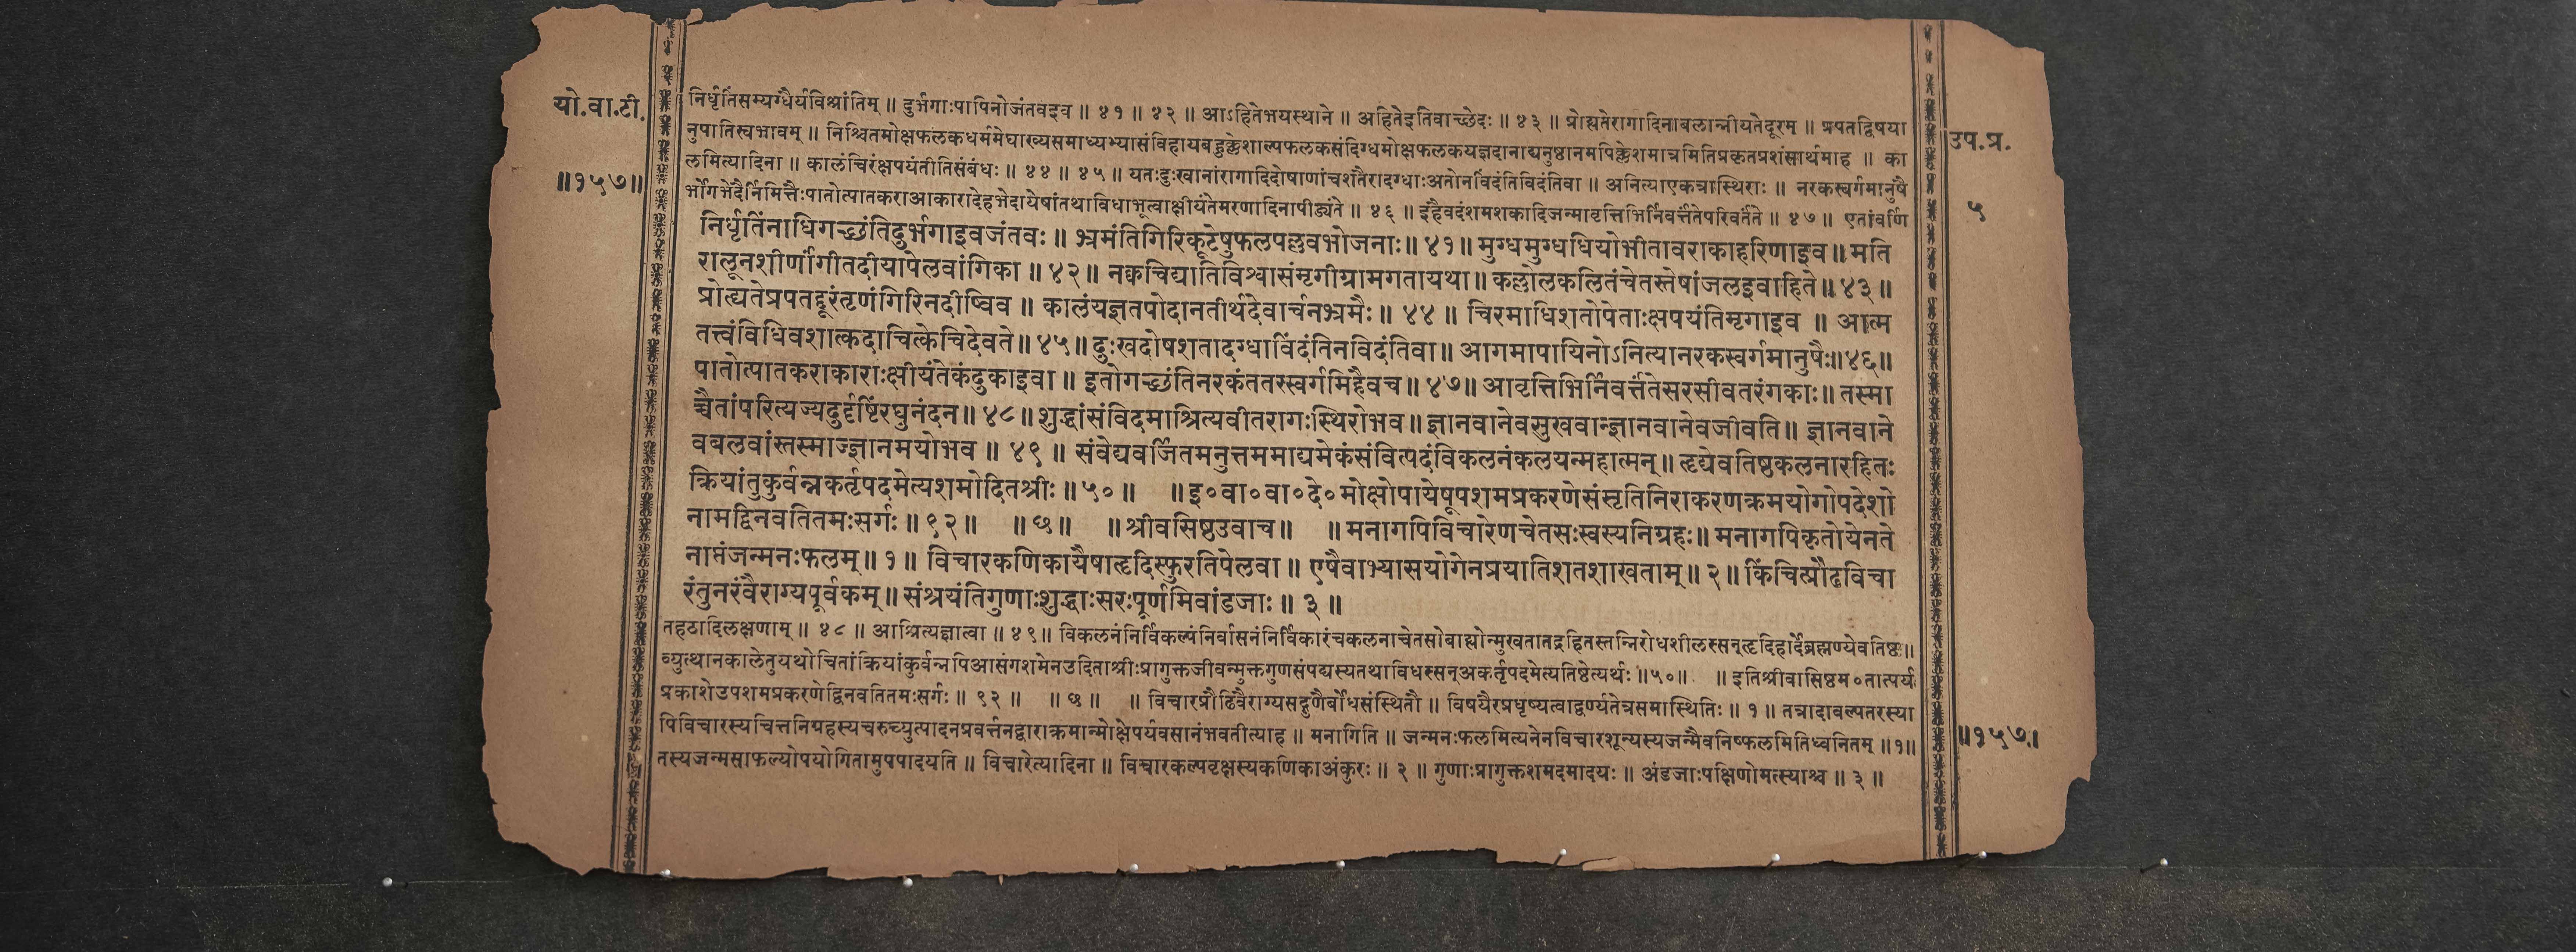 यो.वा.टी.
॥१५७॥
निर्धृतिंसम्यग्धैर्यविश्रांतिम् ॥ दुर्भगाःपापिनोजंतवइव ॥ ४१ ॥ ४२ ॥ आऽहितेभयस्थाने ॥ अहितेइतिवाच्छेदः ॥ ४३ ॥ प्रोह्यतेरागादिनाबलान्नीयतेदूरम् ॥ प्रपतद्विषया
नुपातिस्वभावम् ॥ निश्चितमोक्षफलकधर्ममेघाख्यसमाध्यभ्यासंविहायबहुक्लेशाल्पफलकसंदिग्धमोक्षफलकयज्ञदानाद्यनुष्ठानमपिक्लेशमात्रमितिप्रकृतप्रशंसार्थमाह ॥ का
लमित्यादिना ॥ कालंचिरंक्षपयंतीतिसंबंधः ॥ ४४ ॥ ४५ ॥ यतःदुःखानांरागादिदोषाणांचशतैरादग्धाःअतोनविंदंतिविदंतिवा ॥ अनित्याएकत्रास्थिराः ॥ नरकस्वर्गमानुषै
र्भोगभेदैर्निमित्तैःपातोत्पातकराआकारादेहभेदायेषांतथाविधाभूत्वाक्षीयंतेमरणादिनापीड्यंते ॥ ४६ ॥ इहैवदंशमशकादिजन्मावृत्तिभिर्निवर्त्ततेपरिवर्तते ॥ ४७ ॥ एतांवर्णि
निर्धृतिंनाधिगच्छंतिदुर्भगाइवजंतवः ॥ भ्रमंतिगिरिकूटेषुफलपल्लवभोजनाः॥ ४१॥ मुग्धमुग्धधियोभीतावराकाहरिणाइव॥ मति
रालूनशीर्णांगीतदीयापेलवांगिका ॥ ४२॥ नक्वचिद्यातिविश्वासंमृगीग्रामगतायथा॥ कल्लोलकलितंचेतस्तेषांजलइवाहिते॥ ४३॥
प्रोह्यतेप्रपतद्दूरंतृणंगिरिनदीष्विव ॥ कालंयज्ञतपोदानतीर्थदेवार्चनभ्रमैः॥ ४४ ॥ चिरमाधिशतोपेताःक्षपयंतिमृगाइव ॥ आत्म
तत्त्वंविधिवशात्कदाचित्केचिदेवते॥ ४५॥ दुःखदोषशतादग्धाविंदंतिनविदंतिवा॥ आगमापायिनोऽनित्यानरकस्वर्गमानुषैः॥४६॥
पातोत्पातकराकाराःक्षीयंतेकंदुकाइवा ॥ इतोगच्छंतिनरकंततस्स्वर्गमिहैवच॥ ४७॥ आवृत्तिभिर्निवर्त्ततेसरसीवतरंगकाः॥ तस्मा
च्चैतांपरित्यज्यदुर्दृष्टिंरघुनंदन॥ ४८॥ शुद्धांसंविदमाश्रित्यवीतरागःस्थिरोभव॥ ज्ञानवानेवसुखवान्ज्ञानवानेवजीवति॥ ज्ञानवाने
वबलवांस्तस्माज्ज्ञानमयोभव ॥ ४९ ॥ संवेद्यवर्जितमनुत्तममाद्यमेकंसंवित्पदंविकलनंकलयन्महात्मन्॥ हृद्येवतिष्ठकलनारहितः
क्रियांतुकुर्वन्नकर्तृपदमेत्यशमोदितश्रीः ॥ ५० ॥ ॥ इ०वा०वा०दे०मोक्षोपायेषूपशमप्रकरणेसंसृतिनिराकरणक्रमयोगोपदेशो
नामद्विनवतितमःसर्गः ॥ ९२ ॥ ॥ छ ॥ ॥ श्रीवसिष्ठउवाच॥ ॥ मनागपिविचारेणचेतसःस्वस्यनिग्रहः॥ मनागपिकृतोयेनते
नाप्तंजन्मनःफलम्॥ १ ॥ विचारकणिकायैषाहृदिस्फुरतिपेलवा ॥ एषैवाभ्यासयोगेनप्रयातिशतशाखताम्॥ २॥ किंचित्प्रौढविचा
रंतुनरंवैराग्यपूर्वकम्॥ संश्रयंतिगुणाःशुद्धाःसरःपूर्णमिवांडजाः ॥ ३ ॥
तहठादिलक्षणाम् ॥ ४८ ॥ आश्रित्यज्ञात्वा ॥ ४९॥ विकलनंनिर्विकल्पंनिर्वासनंनिर्विकारंचकलनाचेतसोबाह्योन्मुखतातद्रहितस्तन्निरोधशीलस्सन्हृदिहार्देब्रह्मण्येवतिष्ठ॥
व्युत्थानकालेतुयथोचितांक्रियांकुर्वन्नपिआसंगशमेनउदिताश्रीःप्रागुक्तजीवन्मुक्तगुणसंपद्यस्यतथाविधस्सन्अकर्तृपदमेत्यतिष्ठेत्यर्थः ॥५०॥ ॥ इतिश्रीवासिष्ठम०तात्पर्य
प्रकाशेउपशमप्रकरणेद्विनवतितमःसर्गः ॥ ९२ ॥ ॥ छ ॥ ॥ विचारप्रौढिवैराग्यसद्गुणैर्बोधसंस्थितौ ॥ विषयैरप्रधृष्यत्वाद्वर्ण्यतेत्रसमास्थितिः ॥ १ ॥ तत्रादावल्पतरस्या
पिविचारस्यचित्तनिग्रहस्यचरुच्युत्पादनप्रवर्त्तनद्वाराक्रमान्मोक्षेपर्यवसानंभवतीत्याह ॥ मनागिति ॥ जन्मनःफलमित्यनेनविचारशून्यस्यजन्मैवनिष्फलमितिध्वनितम् ॥१॥
तस्यजन्मसाफल्योपयोगितामुपपादयति ॥ विचारेत्यादिना ॥ विचारकल्पवृक्षस्यकणिकाअंकुरः ॥ २ ॥ गुणाःप्रागुक्तशमदमादयः ॥ अंडजाःपक्षिणोमत्स्याश्च ॥ ३ ॥
उप.प्र.
५
॥१५७॥